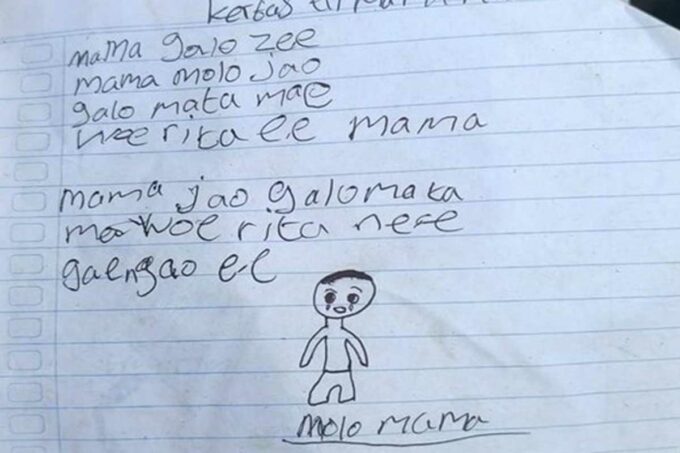 mama galo zee
mama molo jao
galo mata mae
woe rita ee mama
mama jao galo mata
mae woe rita nee
gae ngao e-e
molo mama